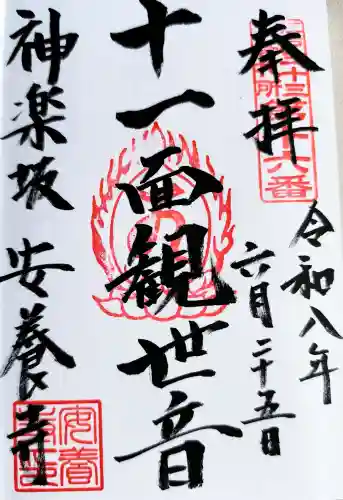 奉拝
令和八年
六月二十五日
十一面観世音
神楽坂 安養寺